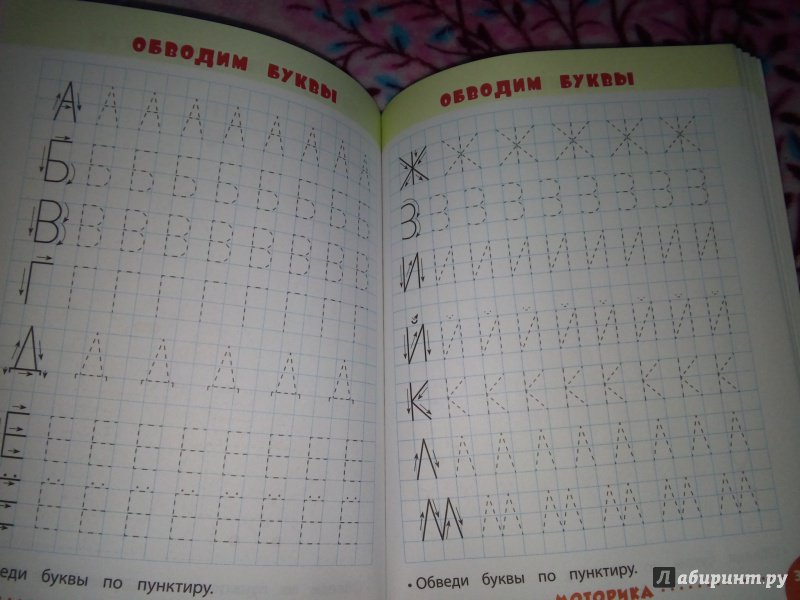 ОБВОДИМ БУКВЫ
А А А А А А А А А
Б Б Б Б Б Б Б Б Б
В В В В В В В В В
Г Г Г Г Г Г Г Г Г
Д Д Д Д Д Д
Е Е Е Е Е Е Е Е Е
Ё Ё Ё Ё Ё Ё Ё Ё Ё
веди буквы по пунктиру.
ОБВОДИМ БУКВЫ
Ж Ж Ж Ж Ж Ж
З З З З З З З З З
И И И И И И И И И
Й Й Й Й Й Й Й Й Й
К К К К К К К К К
Л Л Л Л Л Л Л Л Л
М М М М М М
• Обведи буквы по пунктиру.
МОТОРИКА
Лабиринт.ру